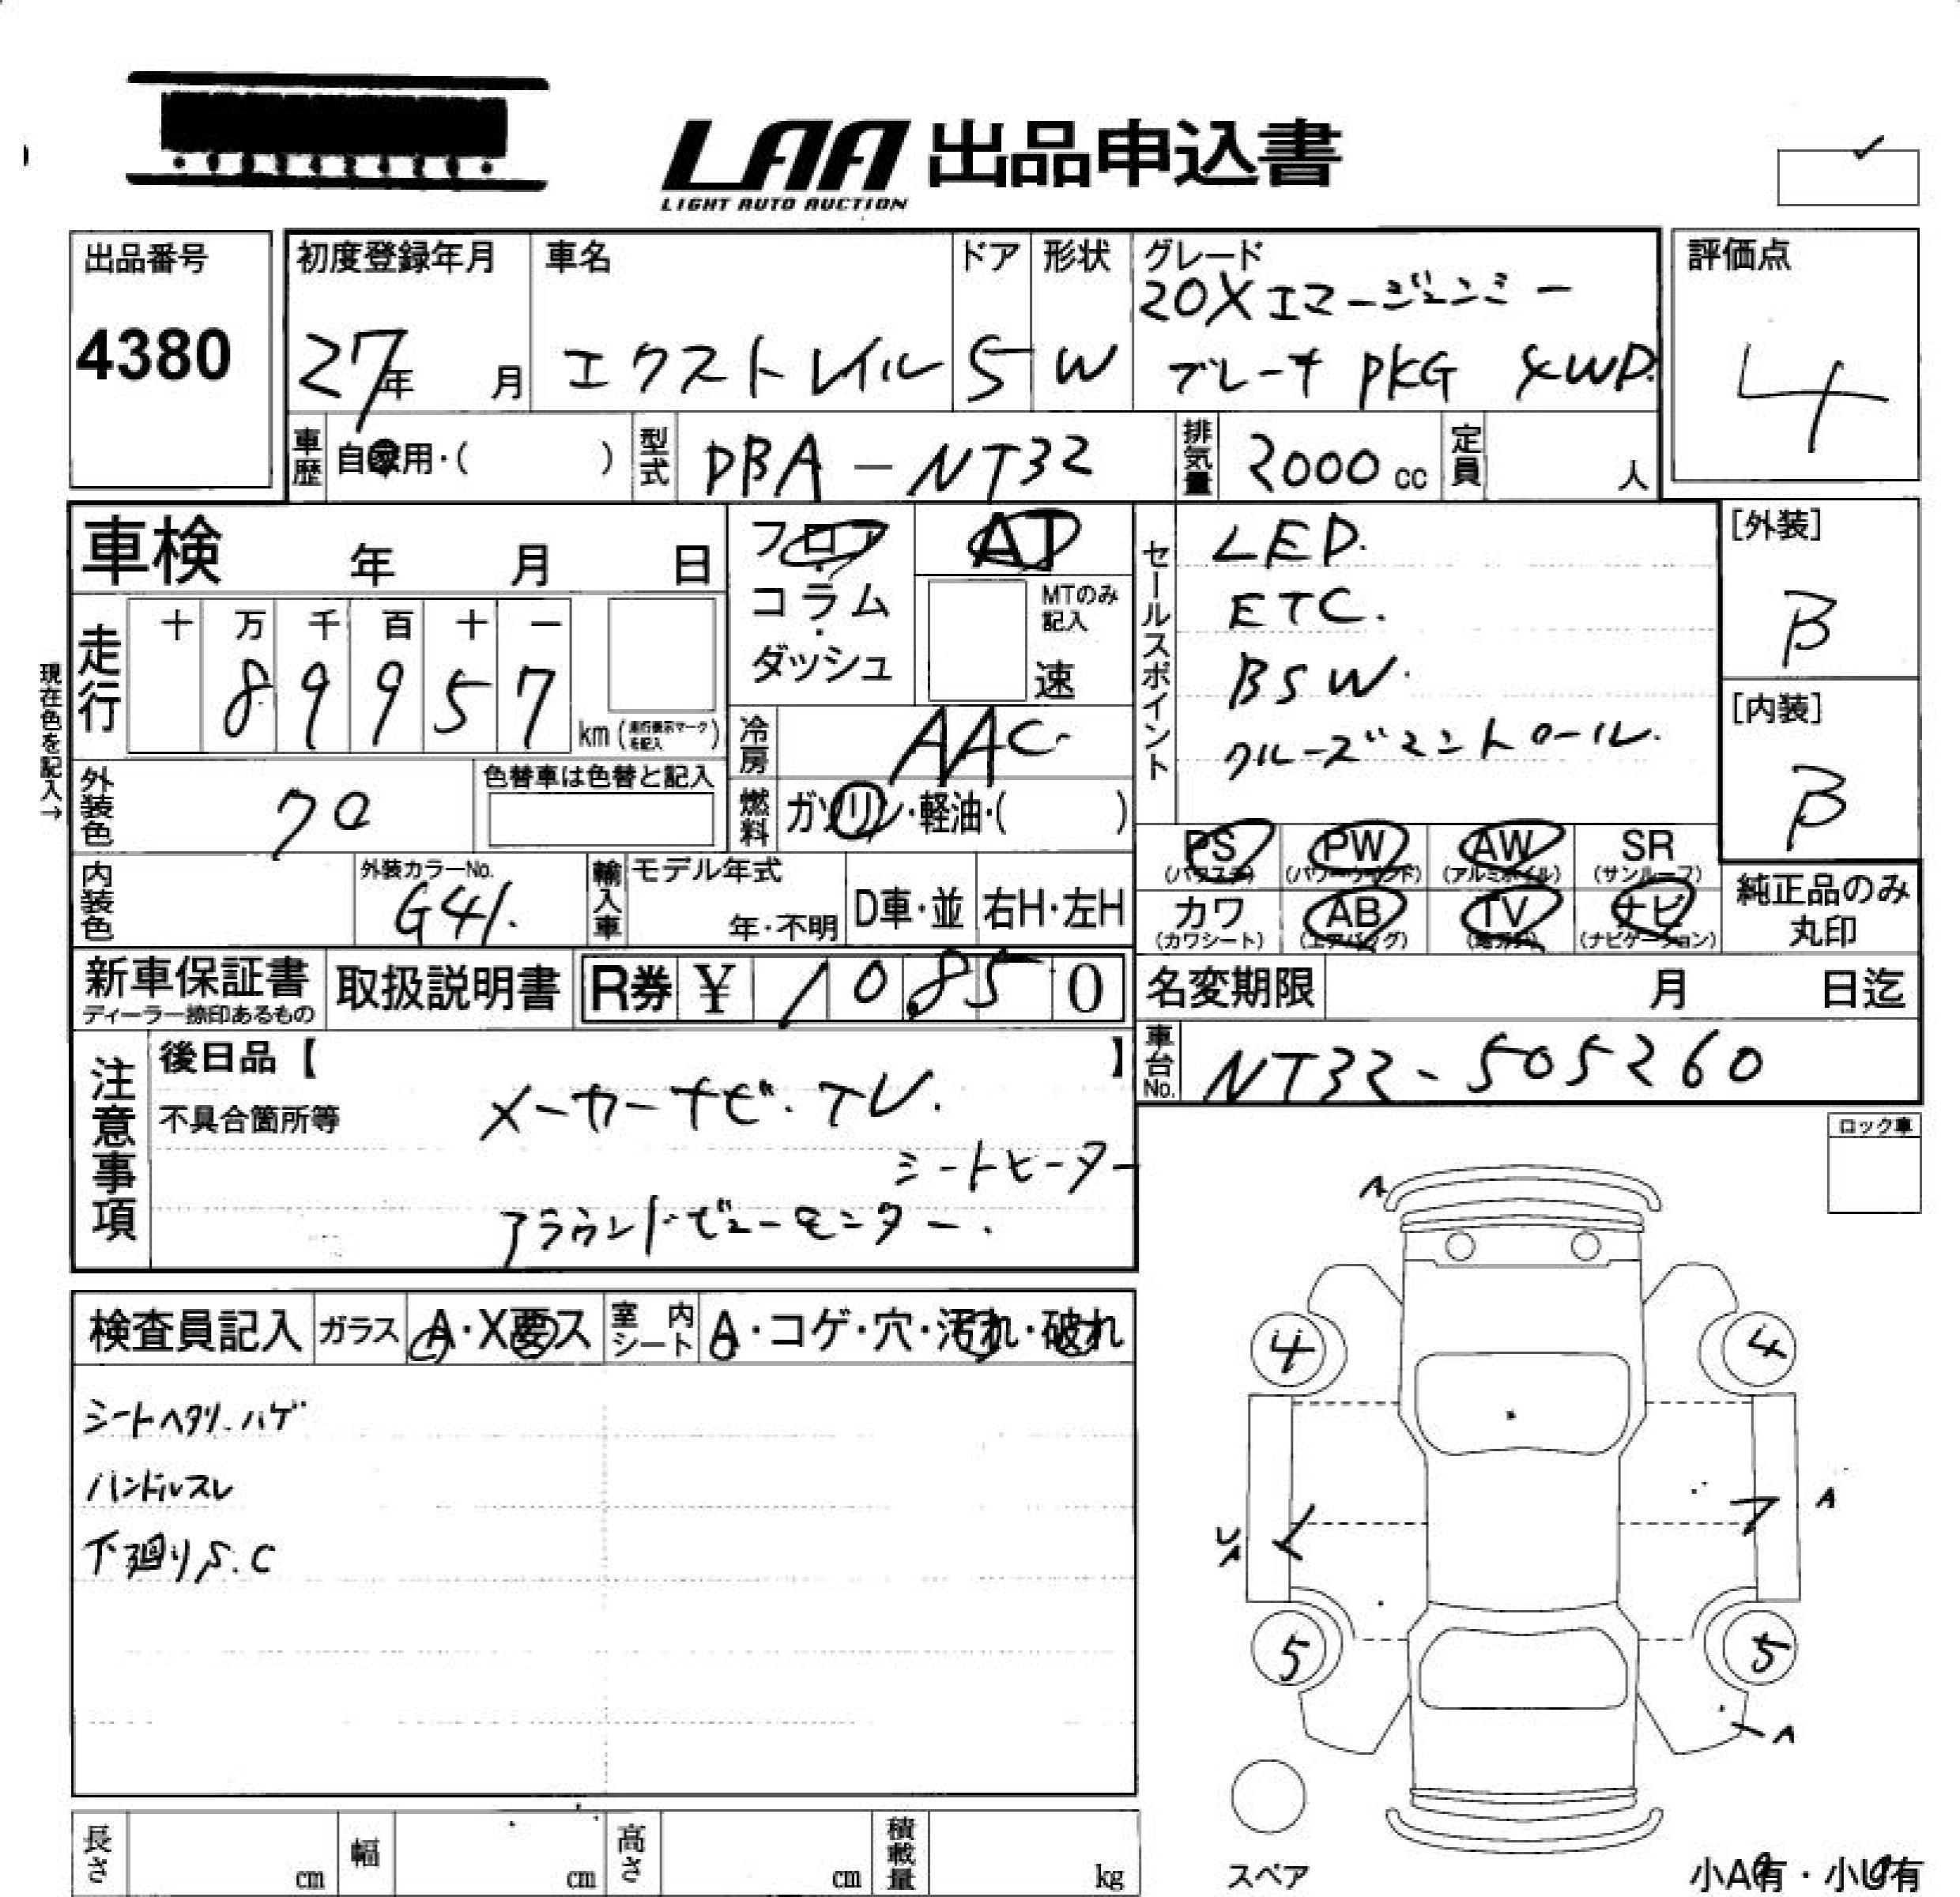 LAA 出品申込書
LIGHT AUTO AUCTION
出品番号
4380
初度登録年月
27年 月
車名
エクストレイル
ドア
5
形状
W
グレード
20Xエマージェンシー
ブレーキ PKG 4WD.
評価点
4
車歴 自家用・( )
型式 DBA-NT32
排気量 2000cc
定員 人
車検 年 月 日
フロア・コラム・ダッシュ
AT
MTのみ記入
速
セールスポイント
LED.
ETC.
BSW.
クルーズコントロール.
[外装]
B
[内装]
B
現在色を記入→
走行
十 万 千 百 十 一
8 9 9 5 7
km (走行表示マークを記入)
冷房 AAC
燃料 ガソリン・軽油・( )
外装色 クロ
色替車は色替と記入
内装色
外装カラーNo.
G41.
輸入車
モデル年式
年・不明
D車・並
右H・左H
PS (パワステ)
PW (パワーウインド)
AW (アルミホイル)
SR (サンルーフ)
カワ (カワシート)
AB (エアバッグ)
TV
ナビ (ナビゲーション)
純正品のみ丸印
新車保証書
ディーラー捺印あるもの
取扱説明書
R券 ¥ 10,850
名変期限 月 日迄
車台No. NT32-505260
注意事項
後日品【 】
不具合箇所等
メーカーナビ・TV.
シートヒーター
アラウンドビューモニター.
ロック車
検査員記入
ガラス A・X要ス
室内シート A・コゲ・穴・汚れ・破れ
シートヘタリ、ハゲ
ハンドルスレ
下廻りS.C
A
4
4
A
U
A
5
5
A
スペア
小A有・小U有
長さ cm
幅 cm
高さ cm
積載量 kg